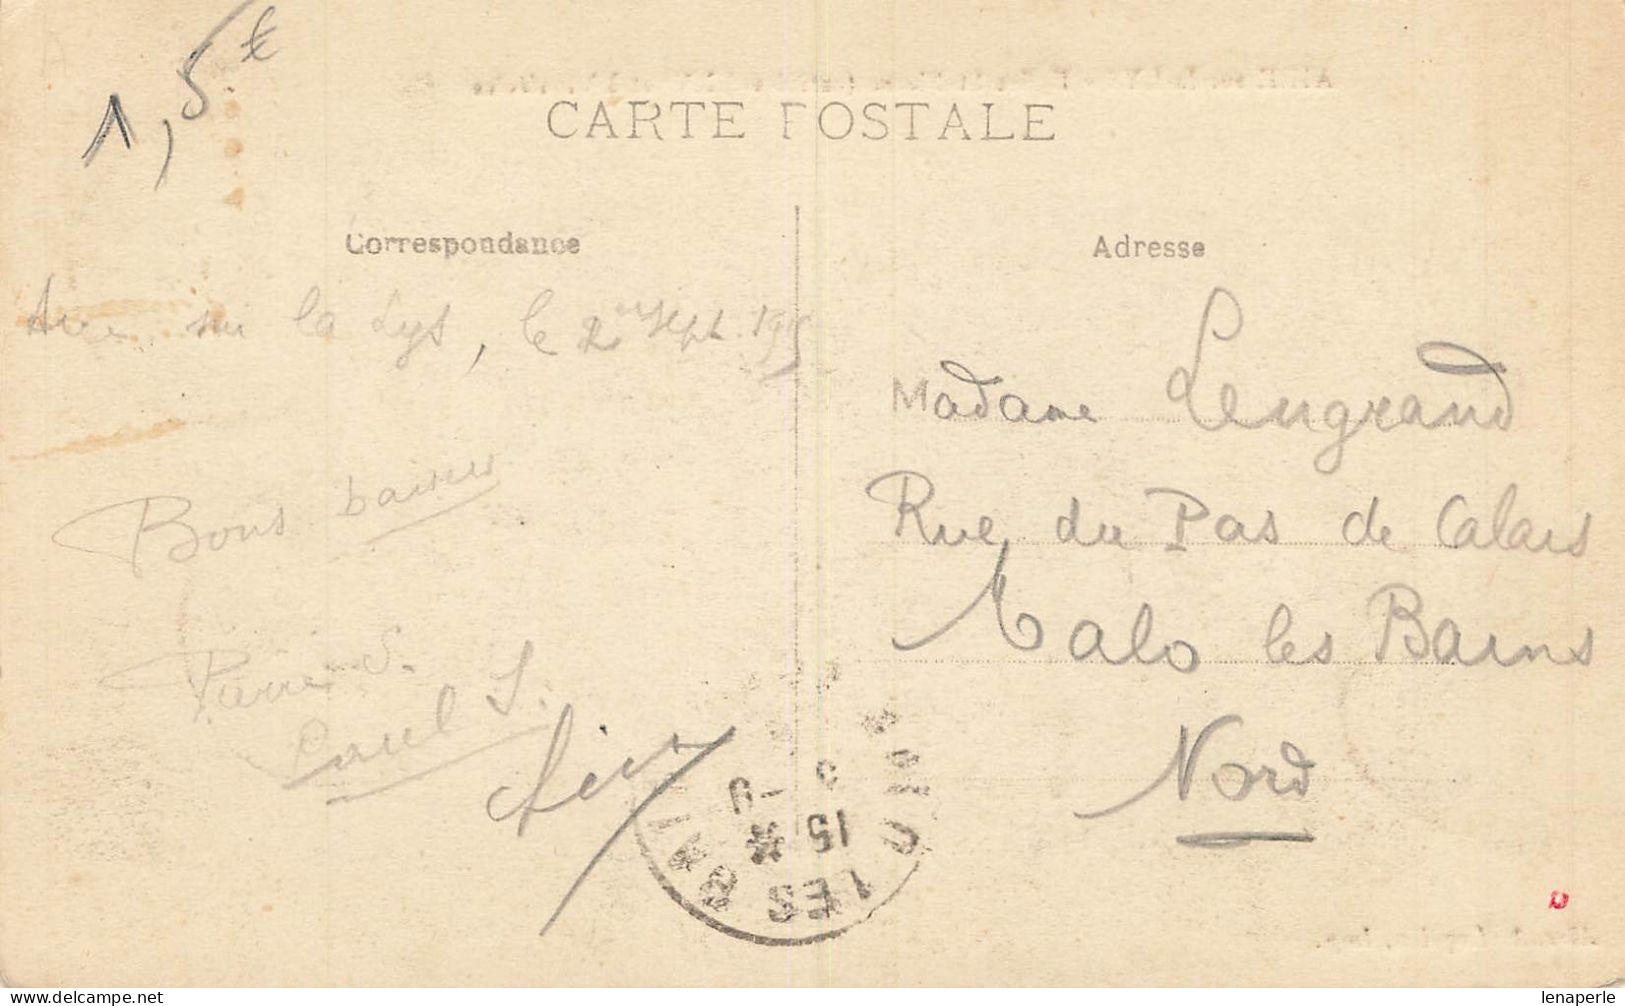 1,5€
CARTE POSTALE
Correspondance
Adresse
Aire sur la Lys, le 2 Sept. 1915
Madame Lengrand
Rue du Pas de Calais
Malo les Bains
Nord
Bons baisers
Pierre S.
S.
15 *
LES BAI
lenaperle